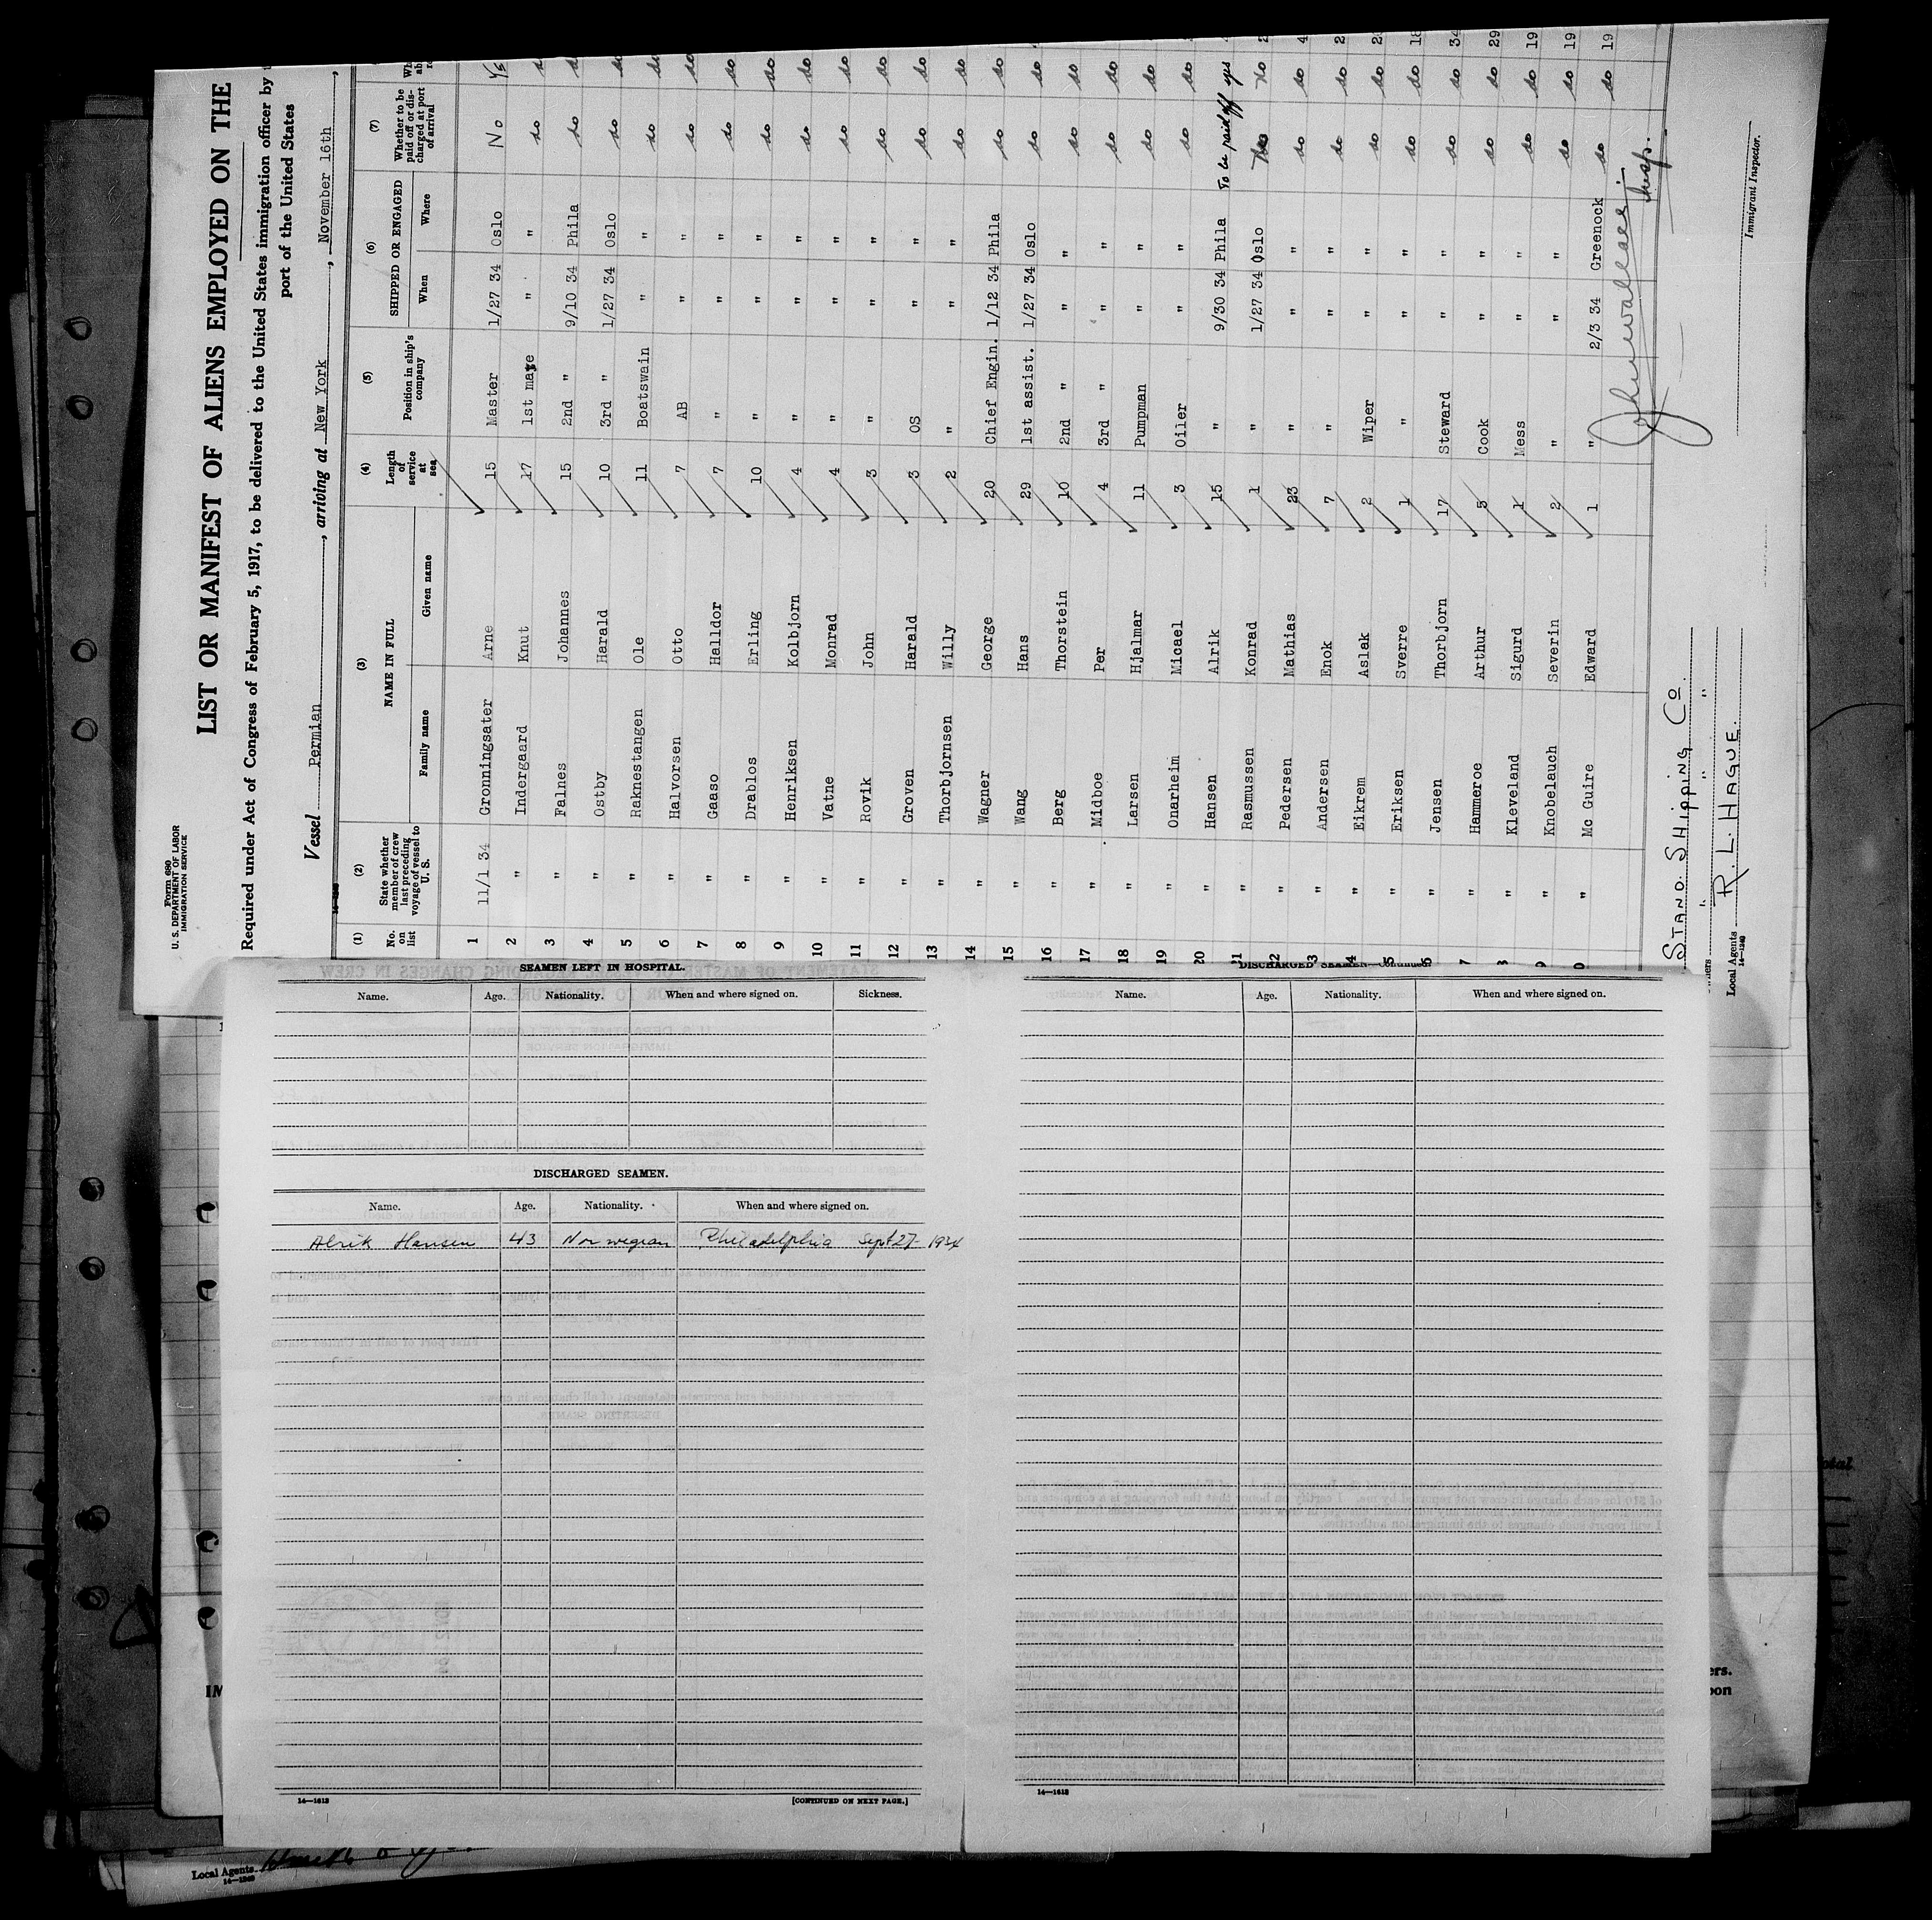 Form 680
U. S. DEPARTMENT OF LABOR
IMMIGRATION SERVICE
LIST OR MANIFEST OF ALIENS EMPLOYED ON THE
Required under Act of Congress of February 5, 1917, to be delivered to the United States immigration officer by
port of the United States
Vessel Permian , arriving at New York , November 16th ,
(1) (2) (3) (4) (5) (6) (7)
No. on list State whether member of crew last preceding voyage of vessel to U. S. NAME IN FULL Family name Given name Length of service at sea Position in ship's company SHIPPED OR ENGAGED When Where Whether to be paid off or discharged at port of arrival
1 11/1 34 Gronningsater Arne 15 Master 1/27 34 Oslo No
2 " Indergaard Knut 17 1st mate " " do do
3 " Falnes Johannes 15 2nd " 9/10 34 Phila do do
4 " Ostby Harald 10 3rd " 1/27 34 Oslo do do
5 " Raknestangen Ole 11 Boatswain " " do do
6 " Halvorsen Otto 7 AB " " do do
7 " Gaaso Halldor 7 " " " do do
8 " Drablos Erling 10 " " " do do
9 " Henriksen Kolbjorn 4 " " " do do
10 " Vatne Monrad 4 " " " do do
11 " Rovik John 3 " " " do do
12 " Groven Harald 3 OS " " do do
13 " Thorbjornsen Willy 2 " " " do do
14 " Wagner George 20 Chief Engin. 1/12 34 Phila do do
15 " Wang Hans 29 1st assist. 1/27 34 Oslo do do
16 " Berg Thorstein 10 2nd " " " do do
17 " Midboe Per 4 3rd " " " do do
18 " Larsen Hjalmar 11 Pumpman " " do do
19 " Onarheim Micael 3 Oiler " " do do
20 " Hansen Alrik 15 " 9/30 34 Phila To be paid off yes
21 " Rasmussen Konrad 1 " 1/27 34 Oslo No
22 " Pedersen Mathias 23 " " " do do 4
3 " Andersen Enok 7 " " " do do 2
4 " Eikrem Aslak 2 Wiper " " do do 2
5 " Eriksen Sverre 1 " " " do do 18
6 " Jensen Thorbjorn 17 Steward " " do do 34
7 " Hammeroe Arthur 5 Cook " " do do 29
8 " Kleveland Sigurd 1 Mess " " do do 19
9 " Knobelauch Severin 2 " " " do do 19
0 " Mc Guire Edward 1 " 2/3 34 Greenock do do 19
Insp.
STAND. SHIPPING Co.
" " "
Local Agents R. L. HAGUE.
14—1240
Immigrant Inspector.
SEAMEN LEFT IN HOSPITAL.
Name. Age. Nationality. When and where signed on. Sickness.
DISCHARGED SEAMEN.
Name. Age. Nationality. When and where signed on.
Alrik Hansen 43 Norwegian Philadelphia Sept 27- 1934
14—1613 [CONTINUED ON NEXT PAGE.]
DISCHARGED SEAMEN—Continued
Name. Age. Nationality. When and where signed on.
14—1613
Local Agents
14—1240